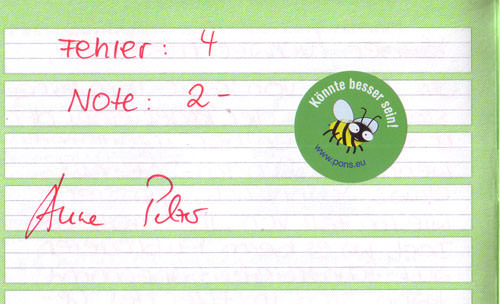 Fehler: 4
Note: 2-
Könnte besser sein!
www.pons.eu
Anne